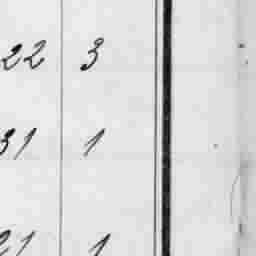 22 3
31 1
21 1